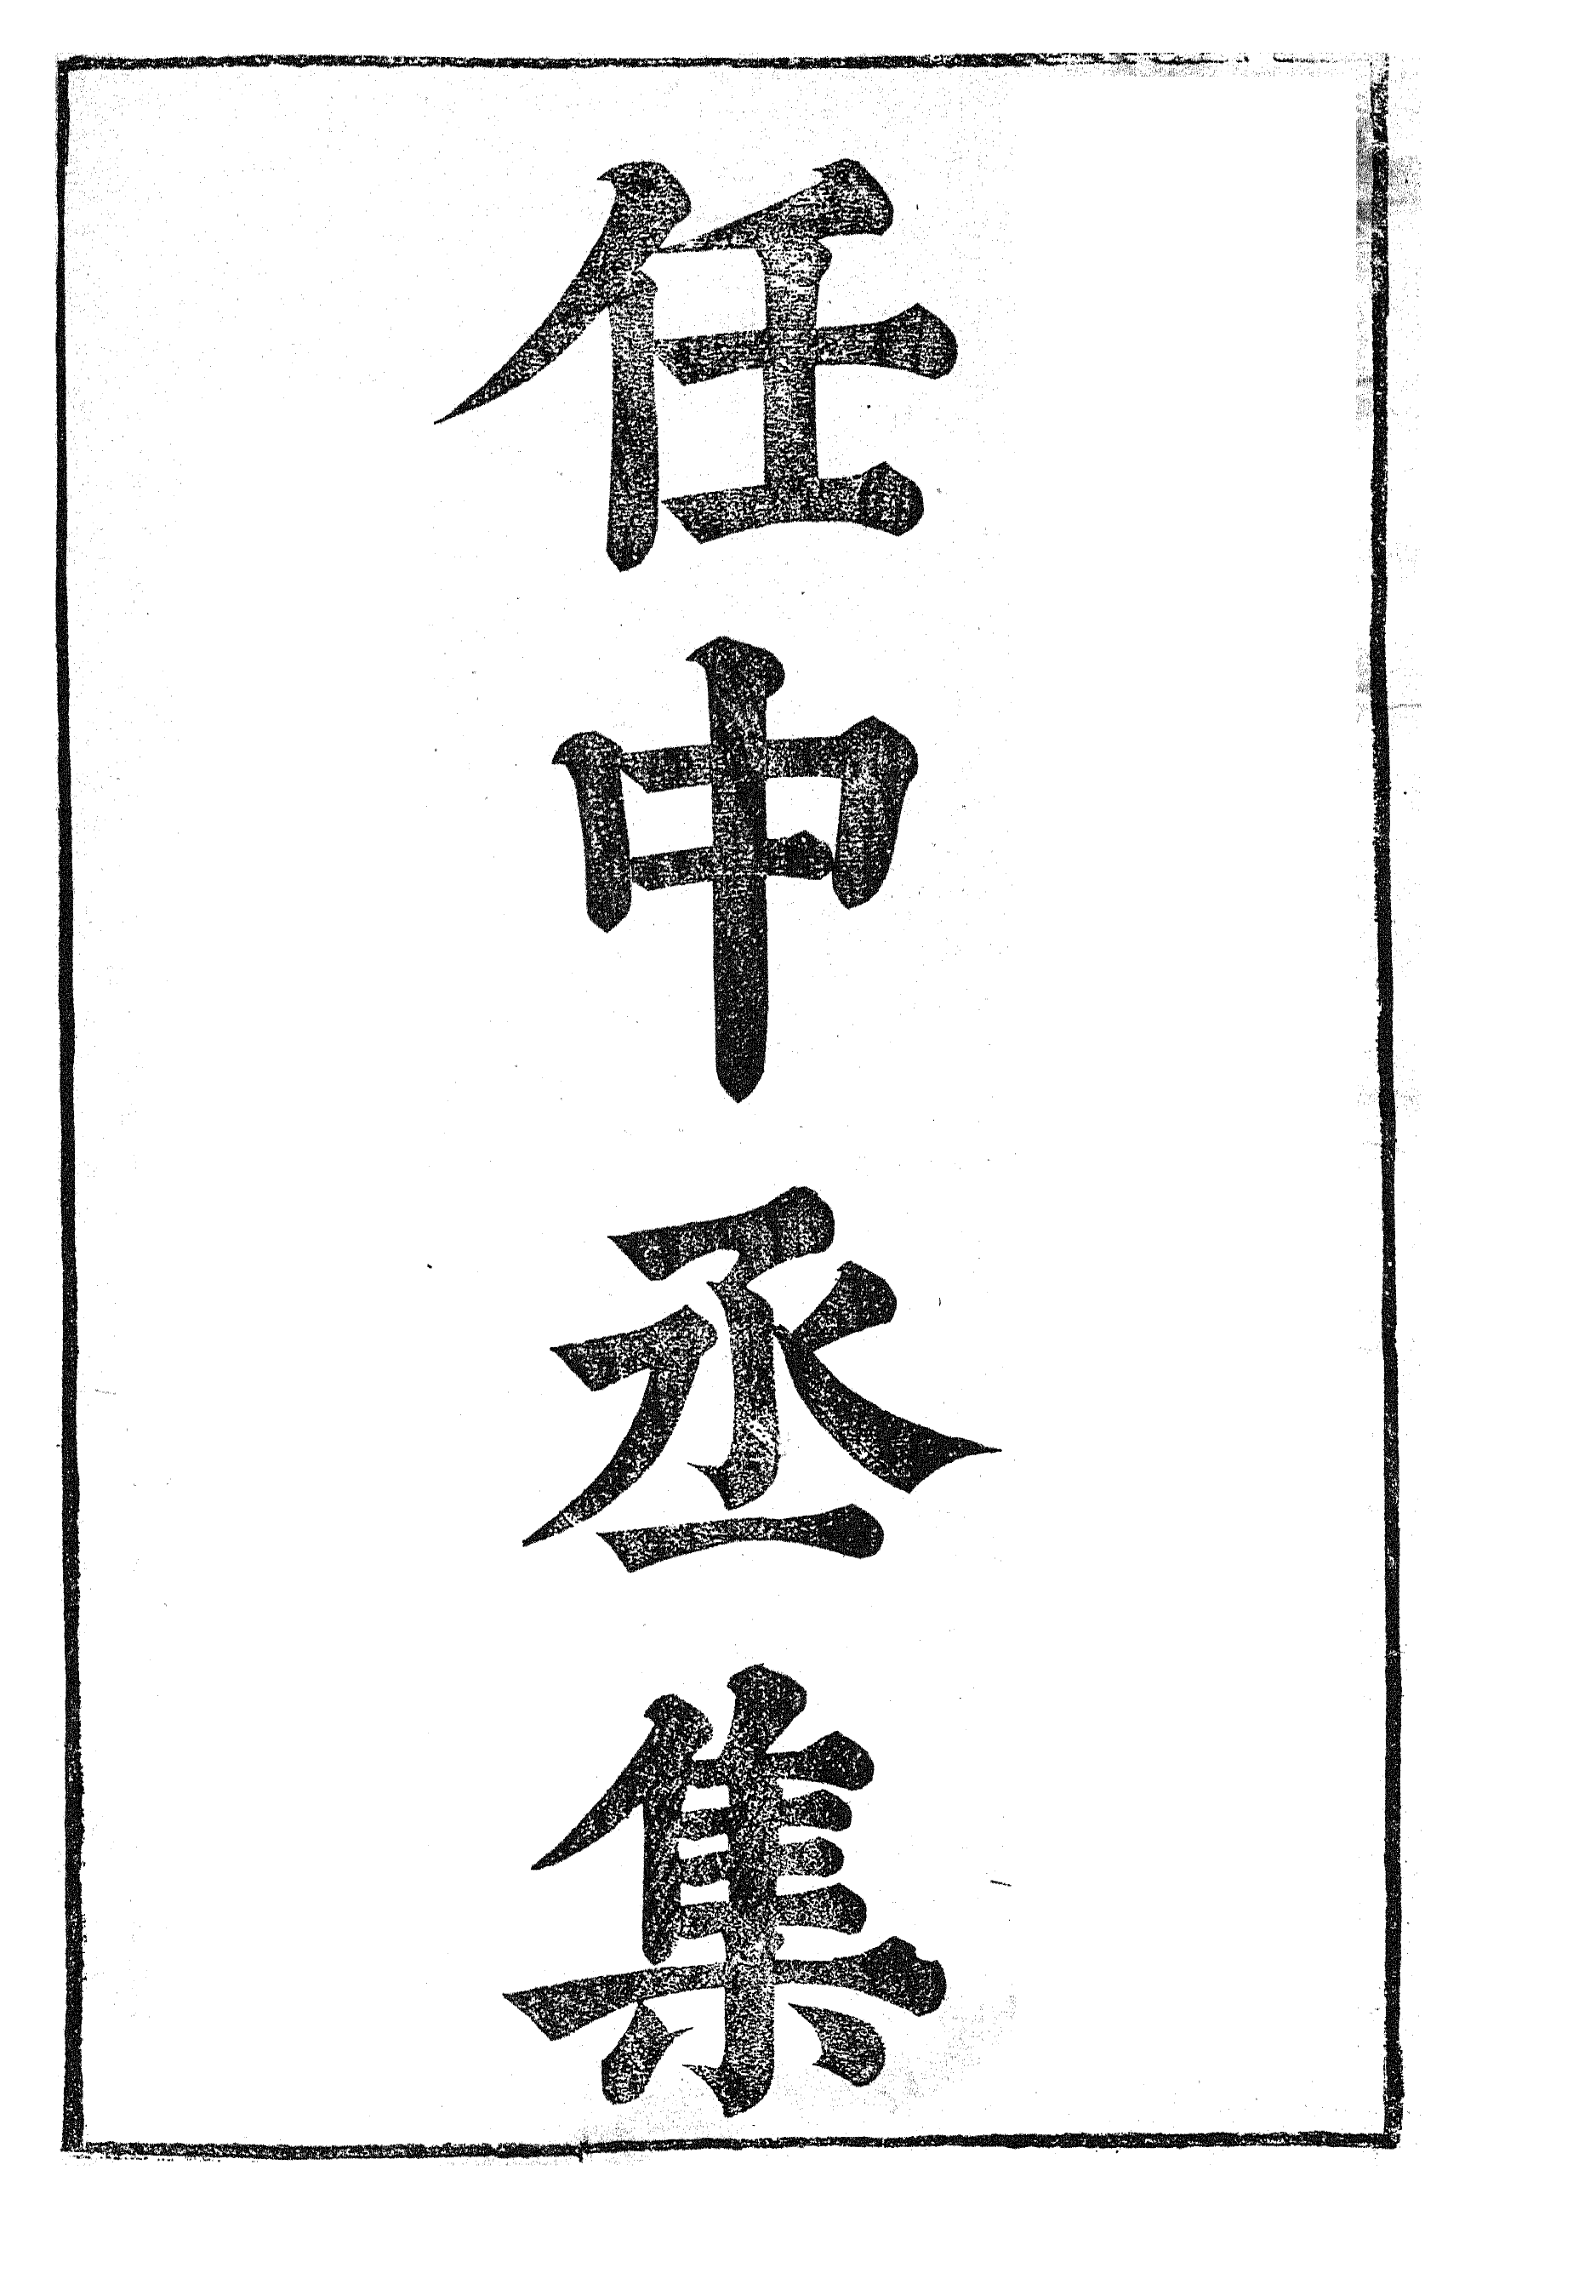 任中丞集